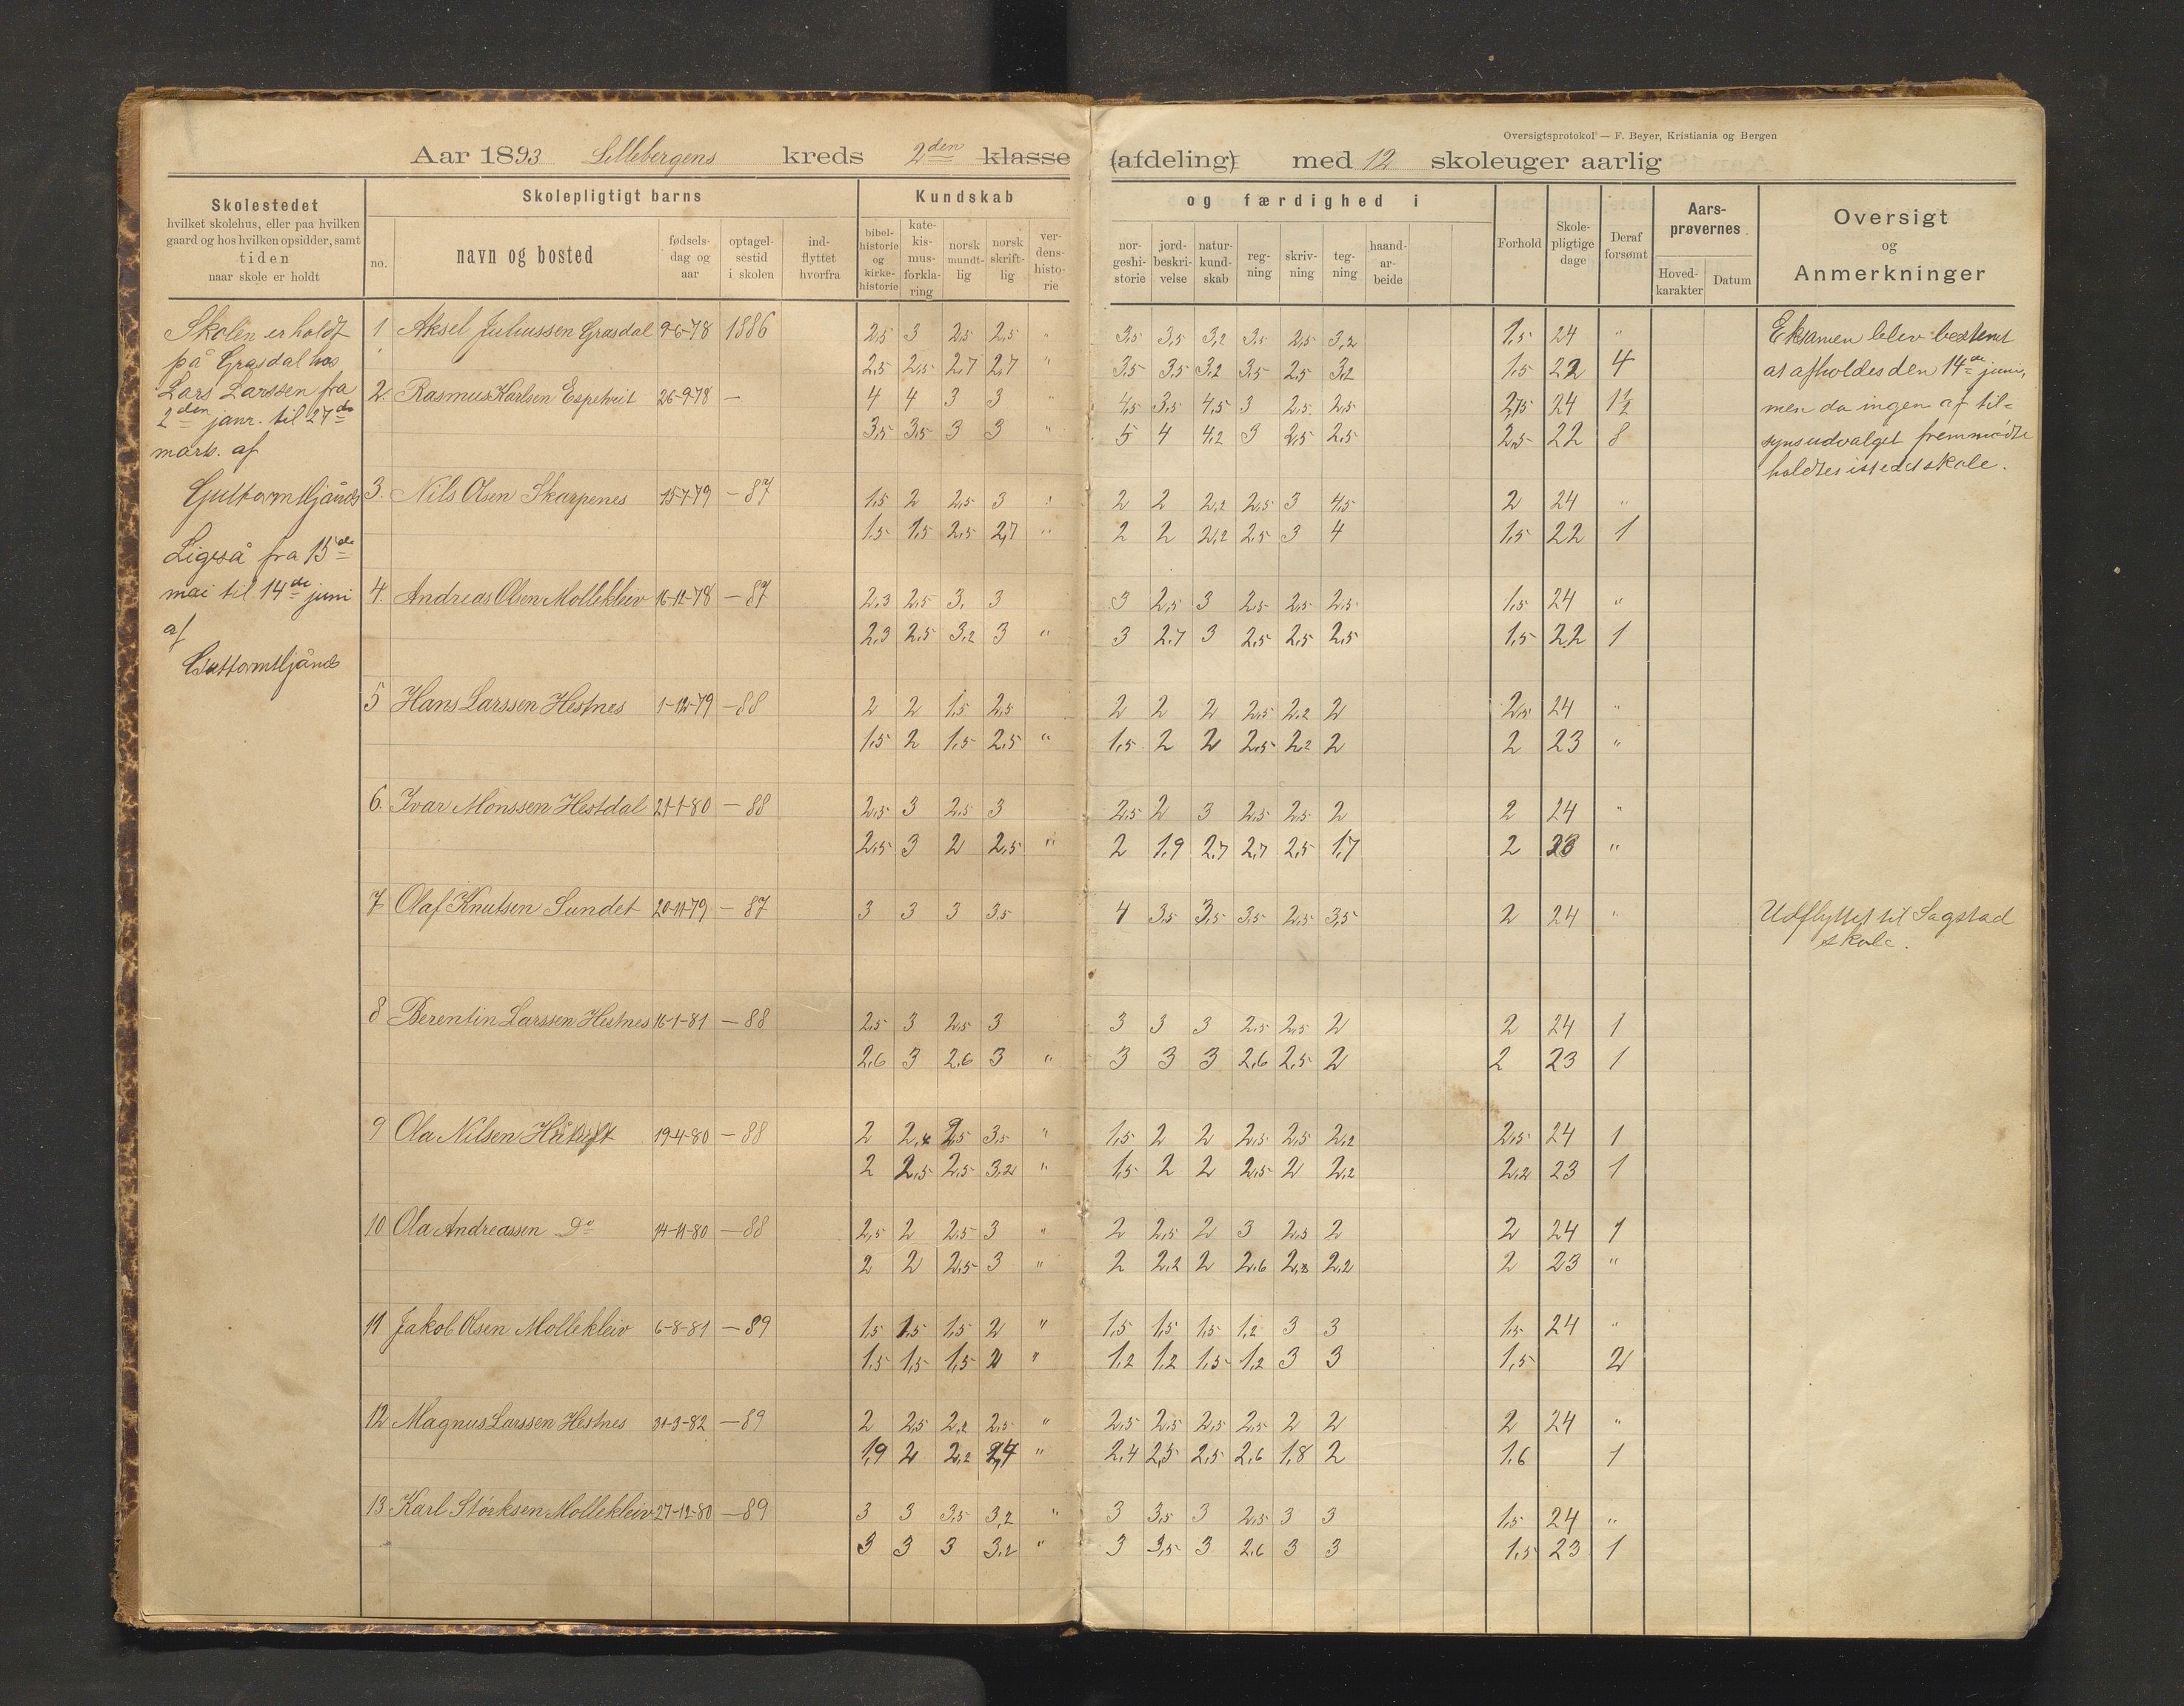 Oversigtsprotokol — F. Beyer, Kristiania og Bergen
Aar 1893 Lillebergens kreds 2den klasse (afdeling) med 12 skoleuger aarlig
Skolestedet
hvilket skolehus, eller paa hvilken
gaard og hos hvilken opsidder, samt
tiden
naar skole er holdt
Skolepligtigt barns
no.
navn og bosted
fødsels-
dag og
aar
optagel-
sestid
i skolen
ind-
flyttet
hvorfra
Kundskab
bibel-
historie
og
kirke-
historie
kate-
kis-
mus-
forkla-
ring
norsk
mundt-
lig
norsk
skrift-
lig
ver-
dens-
histo-
rie
og færdighed i
nor-
geshi-
storie
jord-
beskri-
velse
natur-
kund-
skab
reg-
ning
skriv-
ning
teg-
ning
haand-
ar-
beide
Forhold
Skole-
pligtige
dage
Deraf
forsømt
Aars-
prøvernes
Hoved-
karakter
Datum
Oversigt
og
Anmerkninger
Skolen er holdt
på Grasdal hos
Lars Larssen fra
2den janr. til 27de
marts. af
Guttorm
Ligeså fra 15de
mai til 14de juni
af
Guttorm
1 Aksel Juliussen Grasdal 9-6-78 1886 2,5 3 2,5 2,5 " 3,5 3,5 3,2 3,5 2,5 3,2 1,5 24 "
2,5 2,5 2,7 2,7 " 3,5 3,5 3,2 3,5 2,5 3,2 1,5 22 4
2. Rasmus Karlsen Espetveit 26-9-78 — 4 4 3 3 " 4,5 3,5 4,5 3 2,5 2,5 2,75 24 1½
3,5 3,5 3 3 " 5 4 4,2 3 2,5 2,5 2,5 22 8
3. Nils Olsen Skarpenes 15-7-79 — 87 1,5 2 2,5 3 " 2 2 2,2 2,5 3 4,5 2 24 "
1,5 1,5 2,5 2,7 " 2 2 2,2 2,5 3 4 1,5 22 1
4. Andreas Olsen Mollekleiv 16-12-78 — 87 2,3 2,5 3. 3 3 2,5 3 2,5 2,5 2,5 1,5 24 "
2,3 2,5 3,2 3 " 3 2,7 3 2,5 2,5 2,5 1,5 22 1
5 Hans Larssen Hestnes 1-12-79 — 88 2 2 1,5 2,5 2 2 2 2,5 2,2 2 2,5 24 "
1,5 2 1,5 2,5 " 1,5 2 2 2,5 2,2 2 2 23 "
6. Ivar Monssen Hestdal 21-1-80 — 88 2,5 3 2,5 3 2,5 2 3 2,5 2,5 2 2 24 "
2,5 3 2 2,5 " 2 1,9 2,7 2,7 2,5 1,7 2 23 "
7 Olaf Knutsen Sundet 20-11-79 — 87 3 3 3 3,5 4 3,5 3,5 3,5 2,5 3,5 2 24 "
8 Berentin Larssen Hestnes 16-1-81 — 88 2,5 3 2,5 3 3 3 3 2,5 2,5 2 2 24 1
2,6 3 2,6 3 " 3 3 3 2,6 2,5 2 2 23 1
9 Ola Nilsen 19-4-80 — 88 2 2,4 2,5 3,5 " 1,5 2 2 2,5 2,5 2,2 2,5 24 1
2 2,5 2,5 3,2 " 1,5 2 2 2,5 2 2,2 2,2 23 1
10 Ola Andreassen Do 14-11-80 — 88 2,5 2 2,5 3 " 2 2,5 2 3 2,5 2 2 24 1
2 2 2,5 3 " 2 2,2 2 2,6 2,8 2,2 2 23 "
11 Jakob Olsen Mollekleiv 6-8-81 — 89 1,5 1,5 1,5 2 " 1,5 1,5 1,5 1,2 3 3 1,5 24 "
1,5 1,5 1,5 2 " 1,2 1,2 1,5 1,2 3 3 1,5 2
12 Magnus Larssen Hestnes 31-3-82 — 89 2 2,5 2,2 2,5 " 2,5 2,5 2,5 2,5 2 2 2 24 "
1,9 2 2,2 2,4 " 2,4 2,5 2,5 2,6 1,8 2 1,6 1
13 Karl Størksen Mollekleiv 27-12-80 — 89 3 3 3,5 3,2 " 3 3,5 3 2,5 3 3 1,5 24 "
3 3 3 3,2 " 3 3,5 3 2,6 3 3 1,5 23 1
Eksamen blev bestemt
at afholdes den 14de juni,
men da ingen af til-
synsudvalget fremmødte
holdtes istedet skole.
Udflyttet til Sagstad
skole.